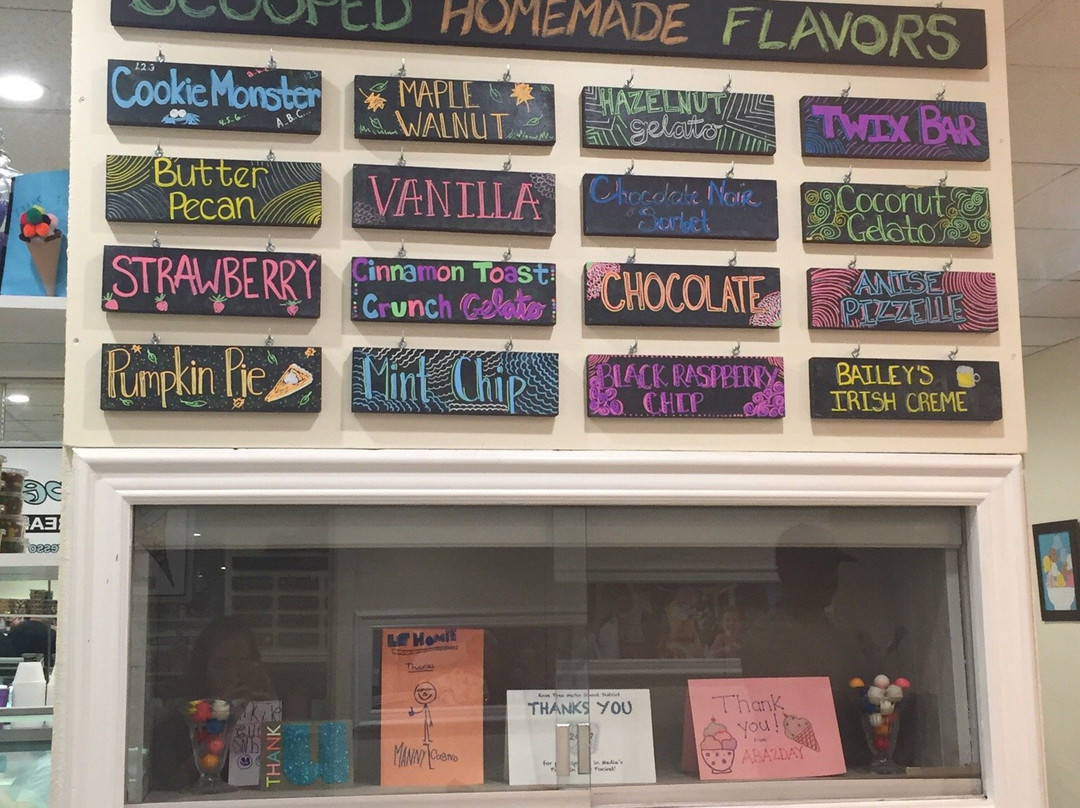 SCOOPED HOMEMADE FLAVORS
1 2 3
Cookie Monster
4.5.6...
A.B.C...
MAPLE
WALNUT
HAZELNUT
gelato
TWIX BAR
Butter
Pecan
VANILLA
Chocolate Noir
Sorbet
Coconut
Gelato
STRAWBERRY
Cinnamon Toast
Crunch Gelato
CHOCOLATE
ANISE
PIZZELLE
Pumpkin Pie
Mint Chip
BLACK RASPBERRY
CHIP
BAILEY'S
IRISH CREME
THANK
u
LE HOMIE
Thanks
MANNY
THANKS YOU
for
in Media's
Thank
you!
from
ABAZDAY